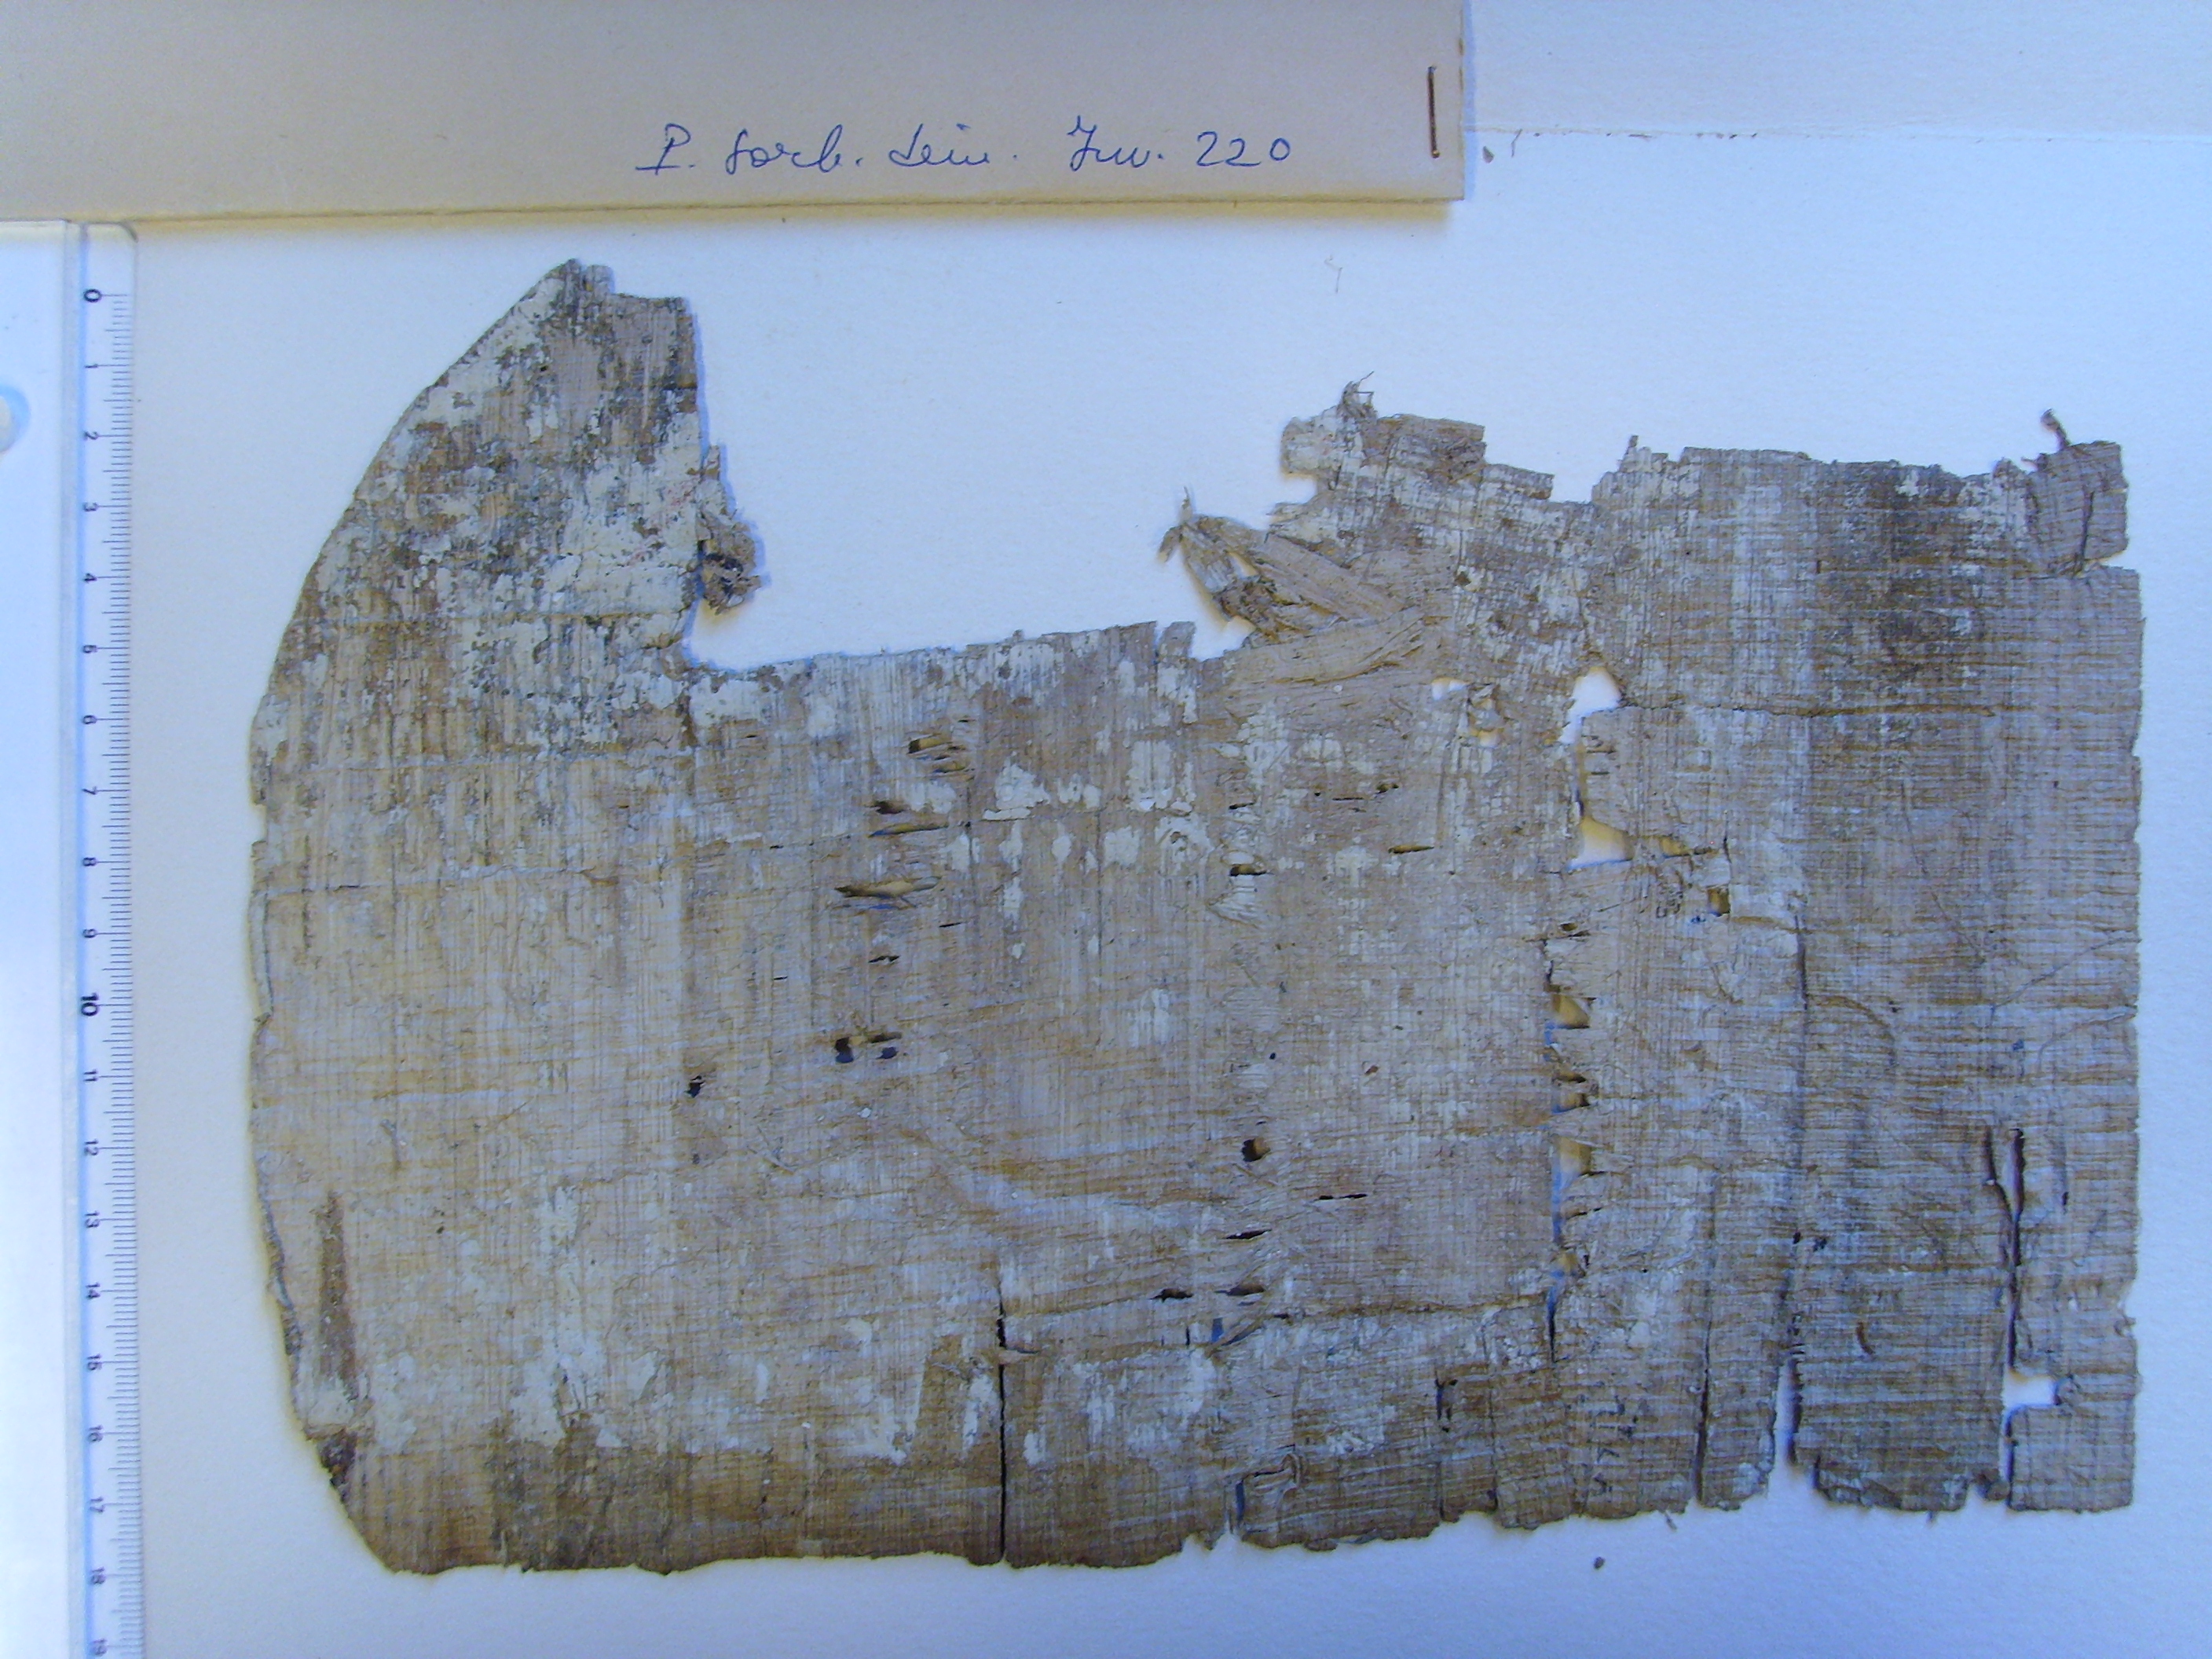 P. Sorb. dém. Inv. 220
0
1
2
3
4
5
6
7
8
9
10
11
12
13
14
15
16
17
18
19